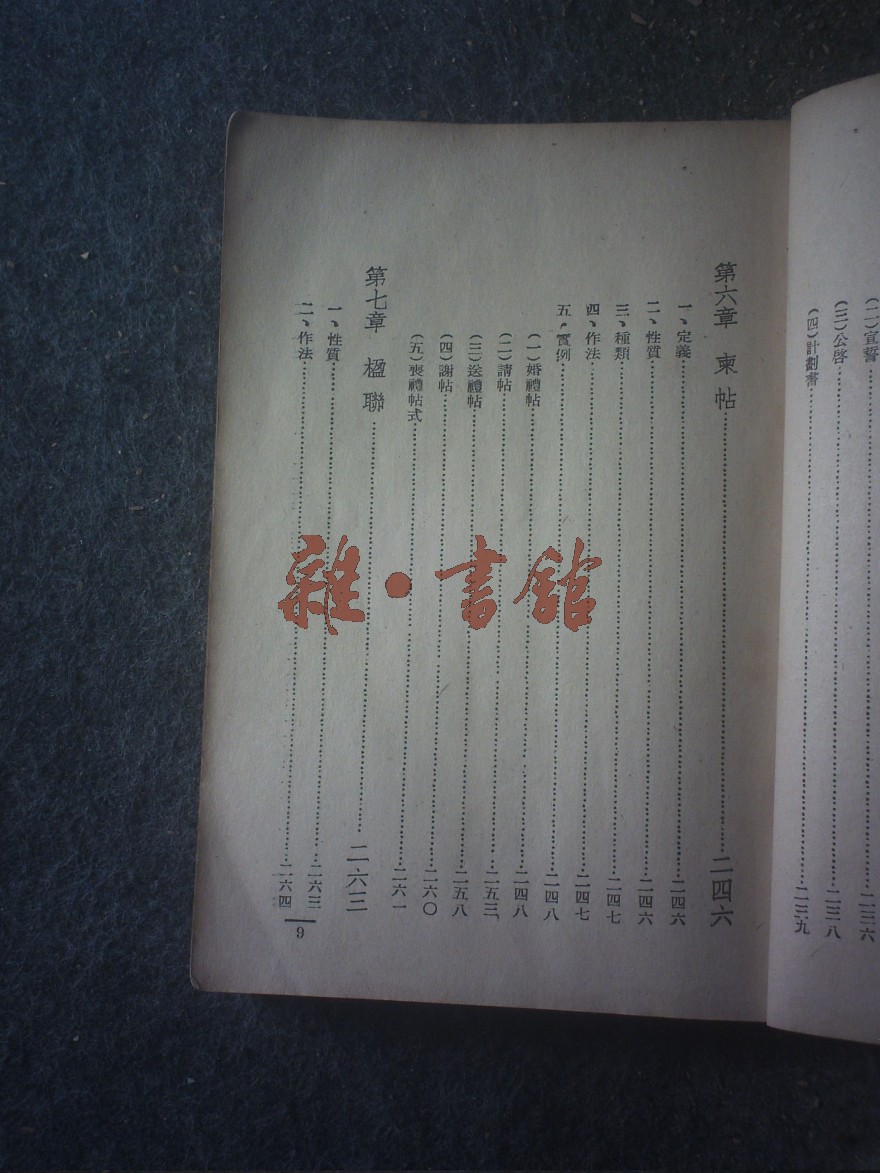 (二)宣誓……二三六
(三)公啓……二三八
(四)計劃書……二三九
第六章 柬帖……二四六
一、定義……二四六
二、性質……二四六
三、種類……二四七
四、作法……二四七
五、實例……二四八
(一)婚禮帖……二四八
(二)請帖……二五三
(三)送禮帖……二五八
(四)謝帖……二六〇
(五)喪禮帖式……二六一
第七章 楹聯……二六三
一、性質……二六三
二、作法……二六四
9
雜·書館